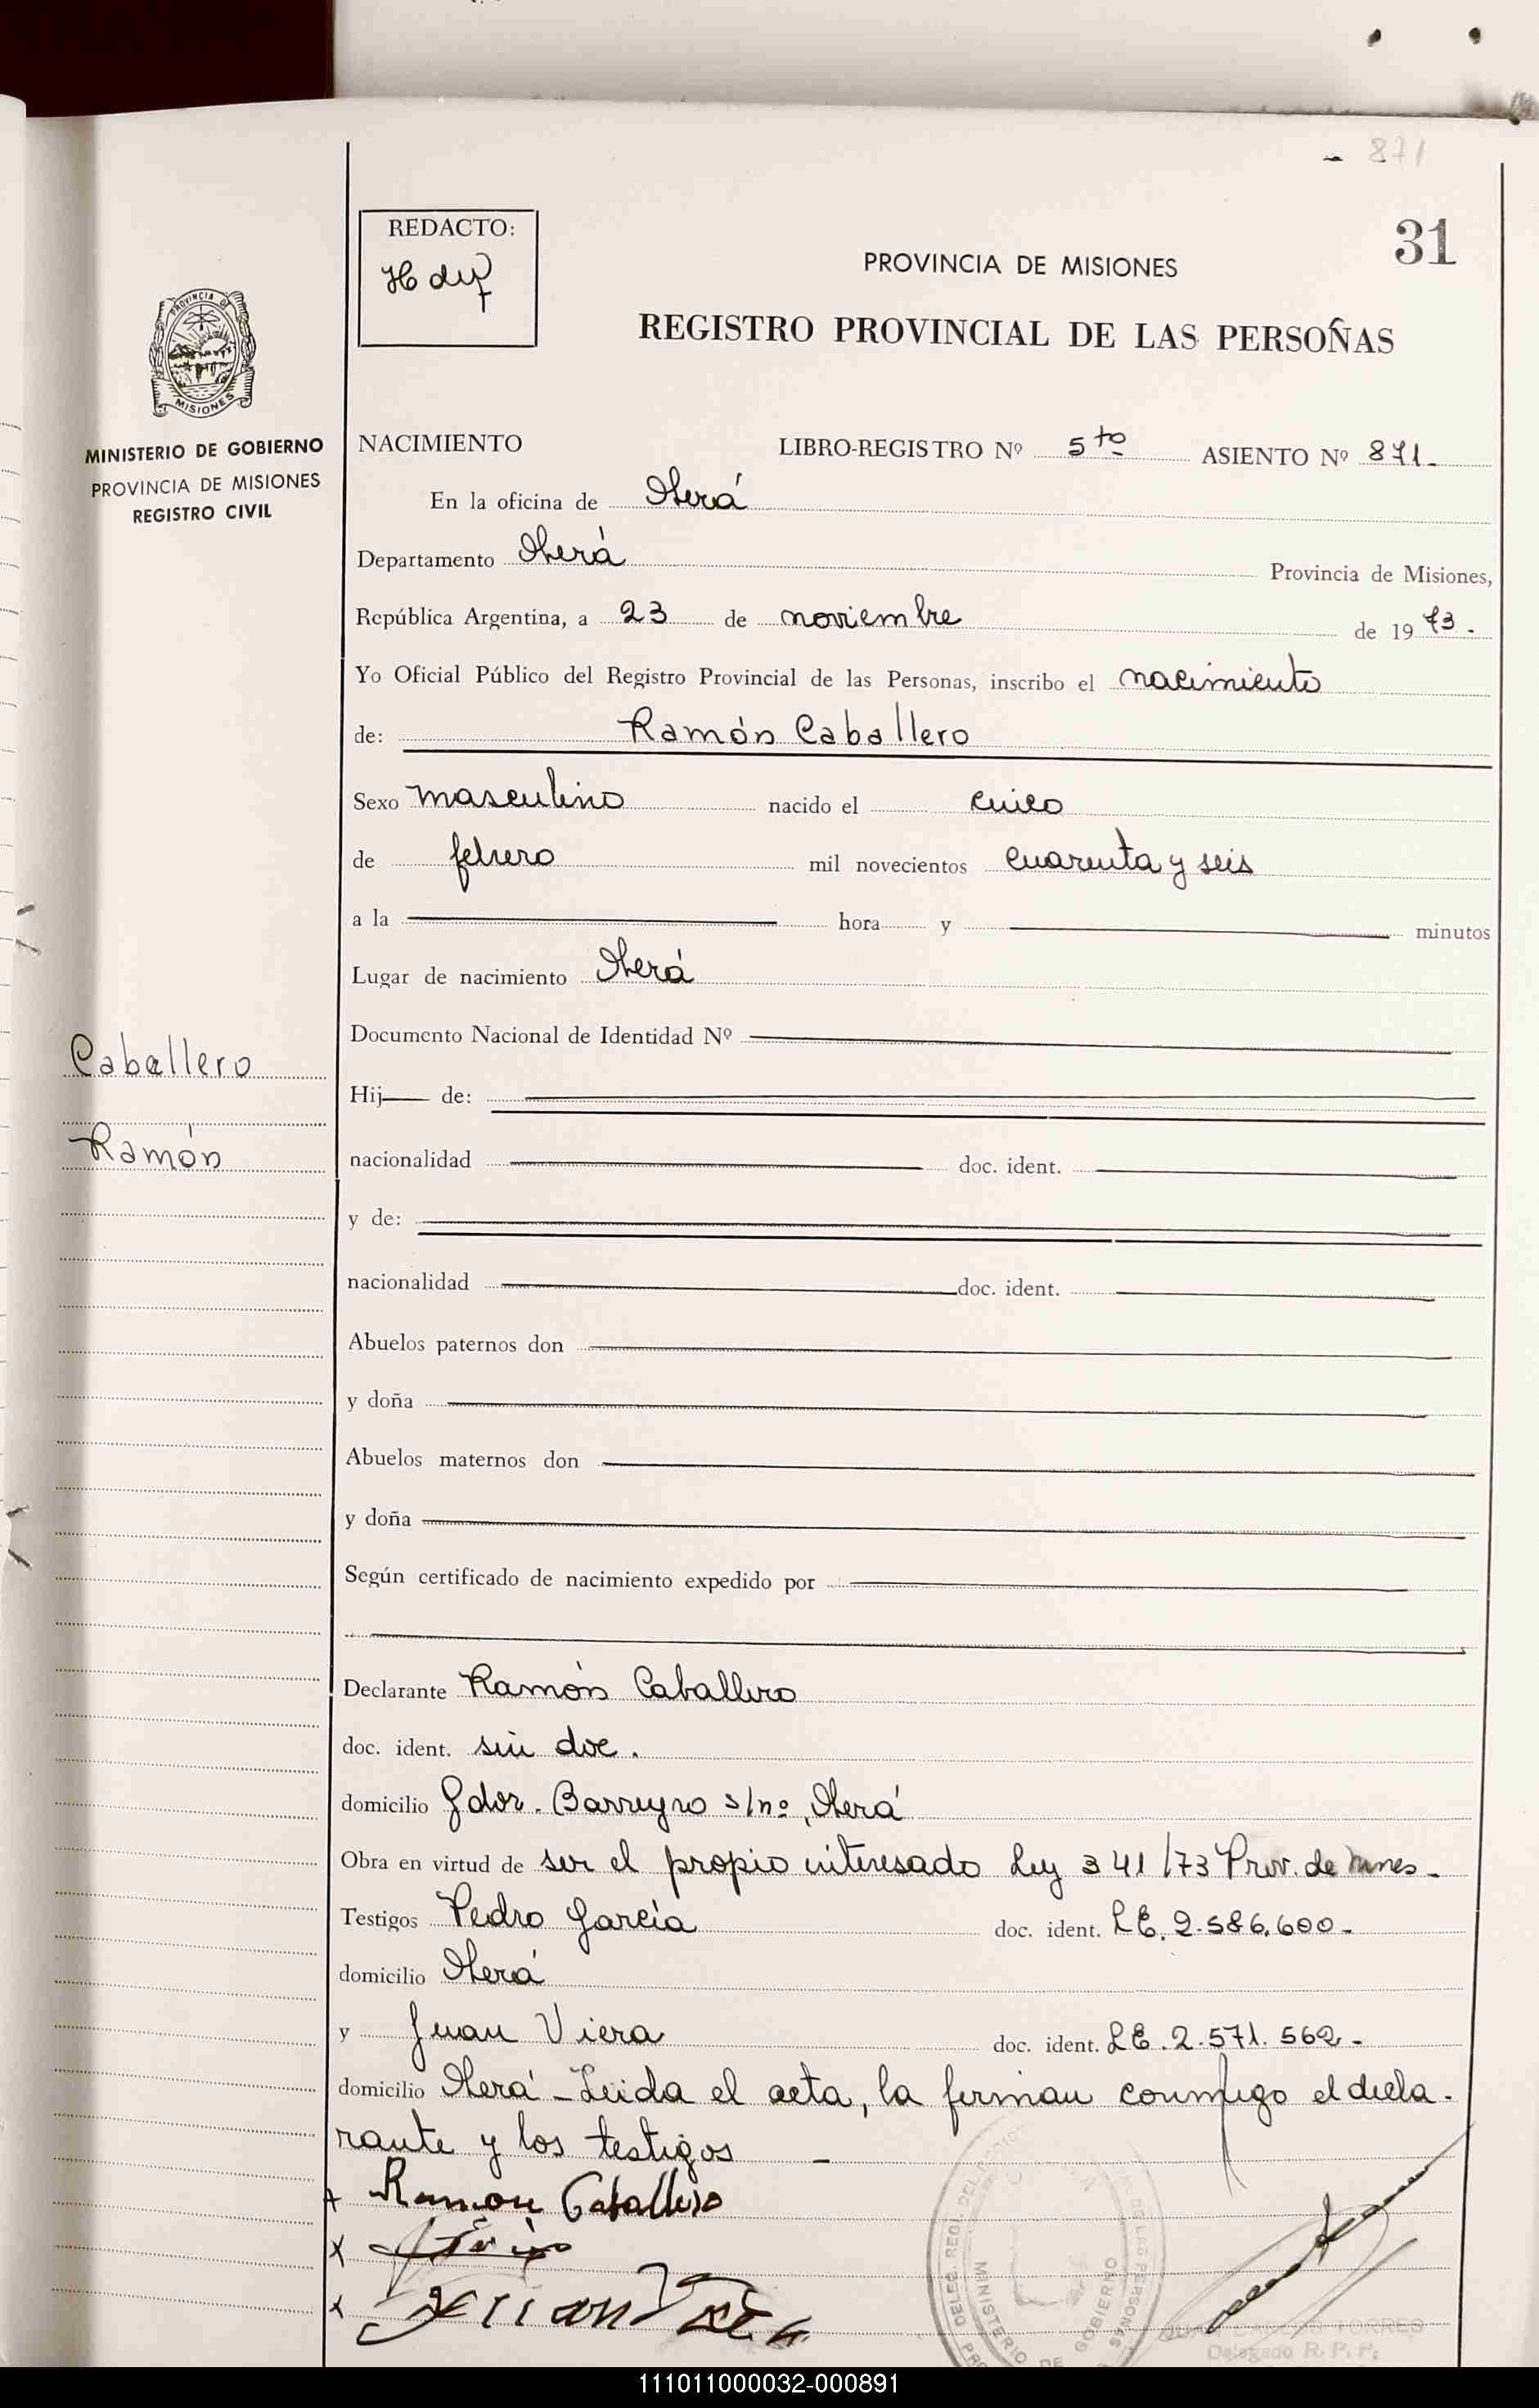 871
31
REDACTO:
PROVINCIA DE MISIONES
REGISTRO PROVINCIAL DE LAS PERSOÑAS
PROVINCIA DE
MISIONES
MINISTERIO DE GOBIERNO
PROVINCIA DE MISIONES
REGISTRO CIVIL
NACIMIENTO LIBRO-REGISTRO Nº 5to ASIENTO Nº 871-
En la oficina de Oberá
Departamento Oberá Provincia de Misiones,
República Argentina, a 23 de noviembre de 1973.
Yo Oficial Público del Registro Provincial de las Personas, inscribo el nacimiento
de: Ramón Caballero
Sexo masculino nacido el cinco
de febrero mil novecientos cuarenta y seis
a la hora y minutos
Lugar de nacimiento Oberá
Documento Nacional de Identidad Nº
Caballero
Hij de:
Ramón
nacionalidad doc. ident.
y de:
nacionalidad doc. ident.
Abuelos paternos don
y doña
Abuelos maternos don
y doña
Según certificado de nacimiento expedido por
Declarante Ramón Caballero
doc. ident. sin doc.
domicilio Gdor. Barreyro s/nº, Oberá
Obra en virtud de ser el propio interesado Ley 341/73 Prov. de Mnes-
Testigos Pedro García doc. ident. LE. 2.586.600-
domicilio Oberá
y Juan Viera doc. ident. LE. 2.571.562-
domicilio Oberá - Leida el acta, la firman conmigo el decla-
rante y los testigos -
x Ramon Caballero
x
x
MINISTERIO DE GOBIERNO
TORRES
Delegado R. P. P.
111011000032-000891